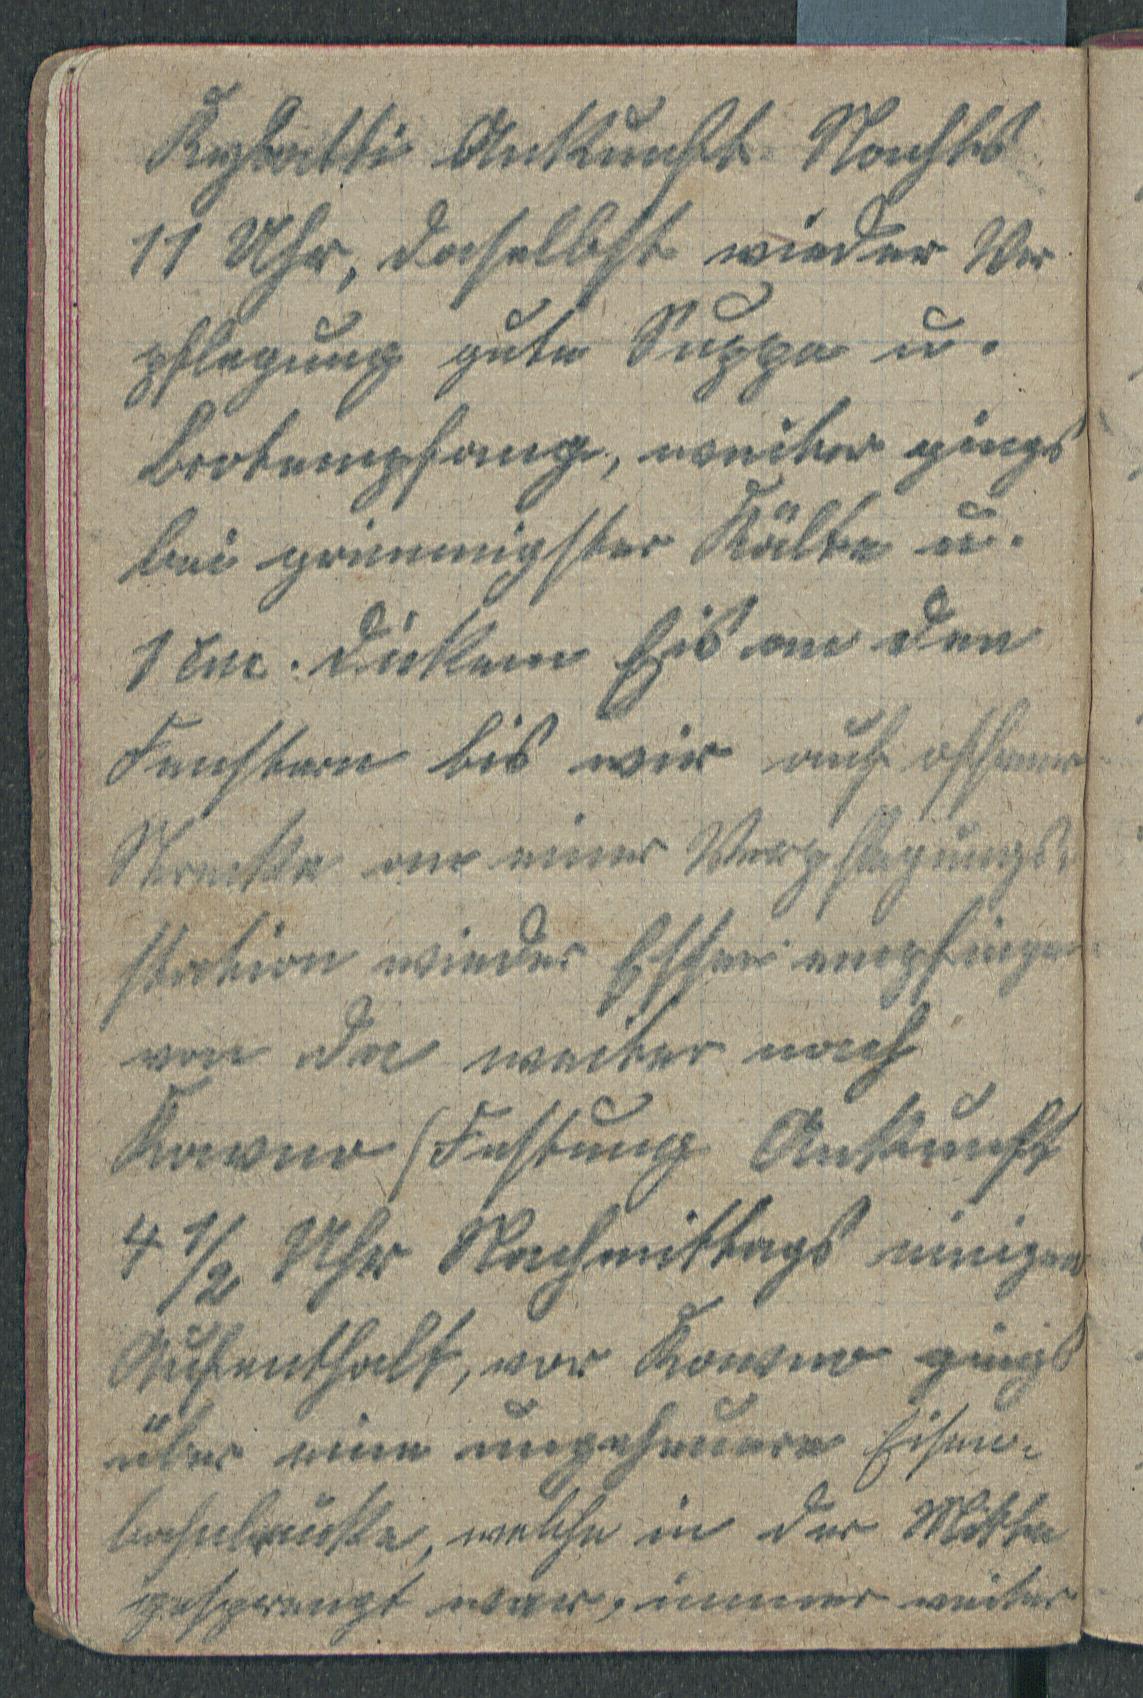 Ankunft Nachts
11 Uhr, daselbst wieder Ver
pflegung gute Suppe u.
Brotempfang, weiter gings
bei grimmigster Kälte u.
1 cm. dickem Eis an den
Fenstern bis wir auf offener
Strecke an einer Verpflegungs-
station wieder Essen empfingen
von da weiter nach
Kowno (Festung Ankunft
4 1/2 Uhr Nachmittags einigen
Aufenthalt, vor Kowno gings
über eine ungeheuere Eisen-
bahnbrücke, welche in der Mitte
gesprengt war, immer weiter